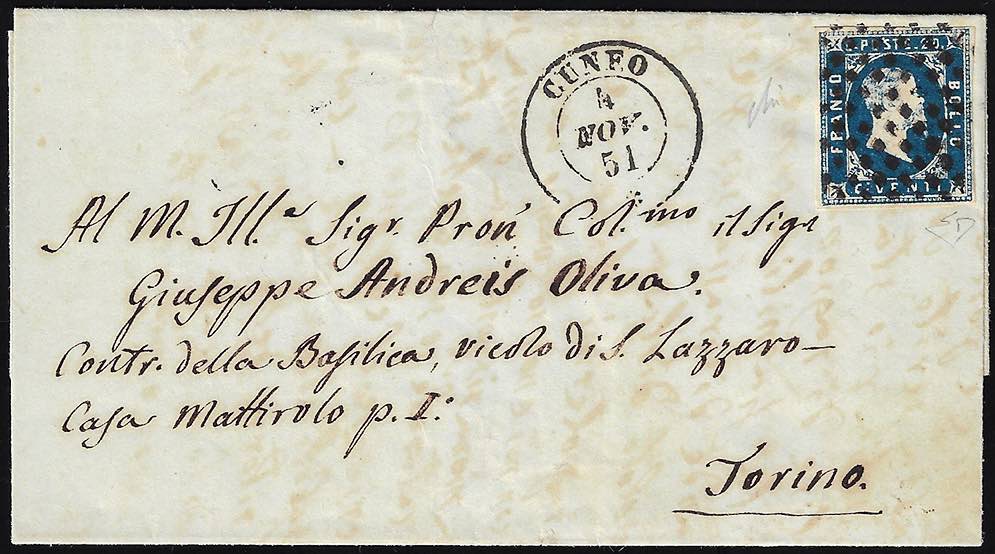 CUNEO
4
NOV.
51
C. POSTE. 20.
FRANCO
BOLLO
C. VENTI
Al M. Ill.e Sigr. Pron Col.mo il Sigr
Giuseppe Andreis Oliva.
Contr. della Basilica, vicolo di S. Lazzaro—
Casa Mattirolo p. I:
Torino.